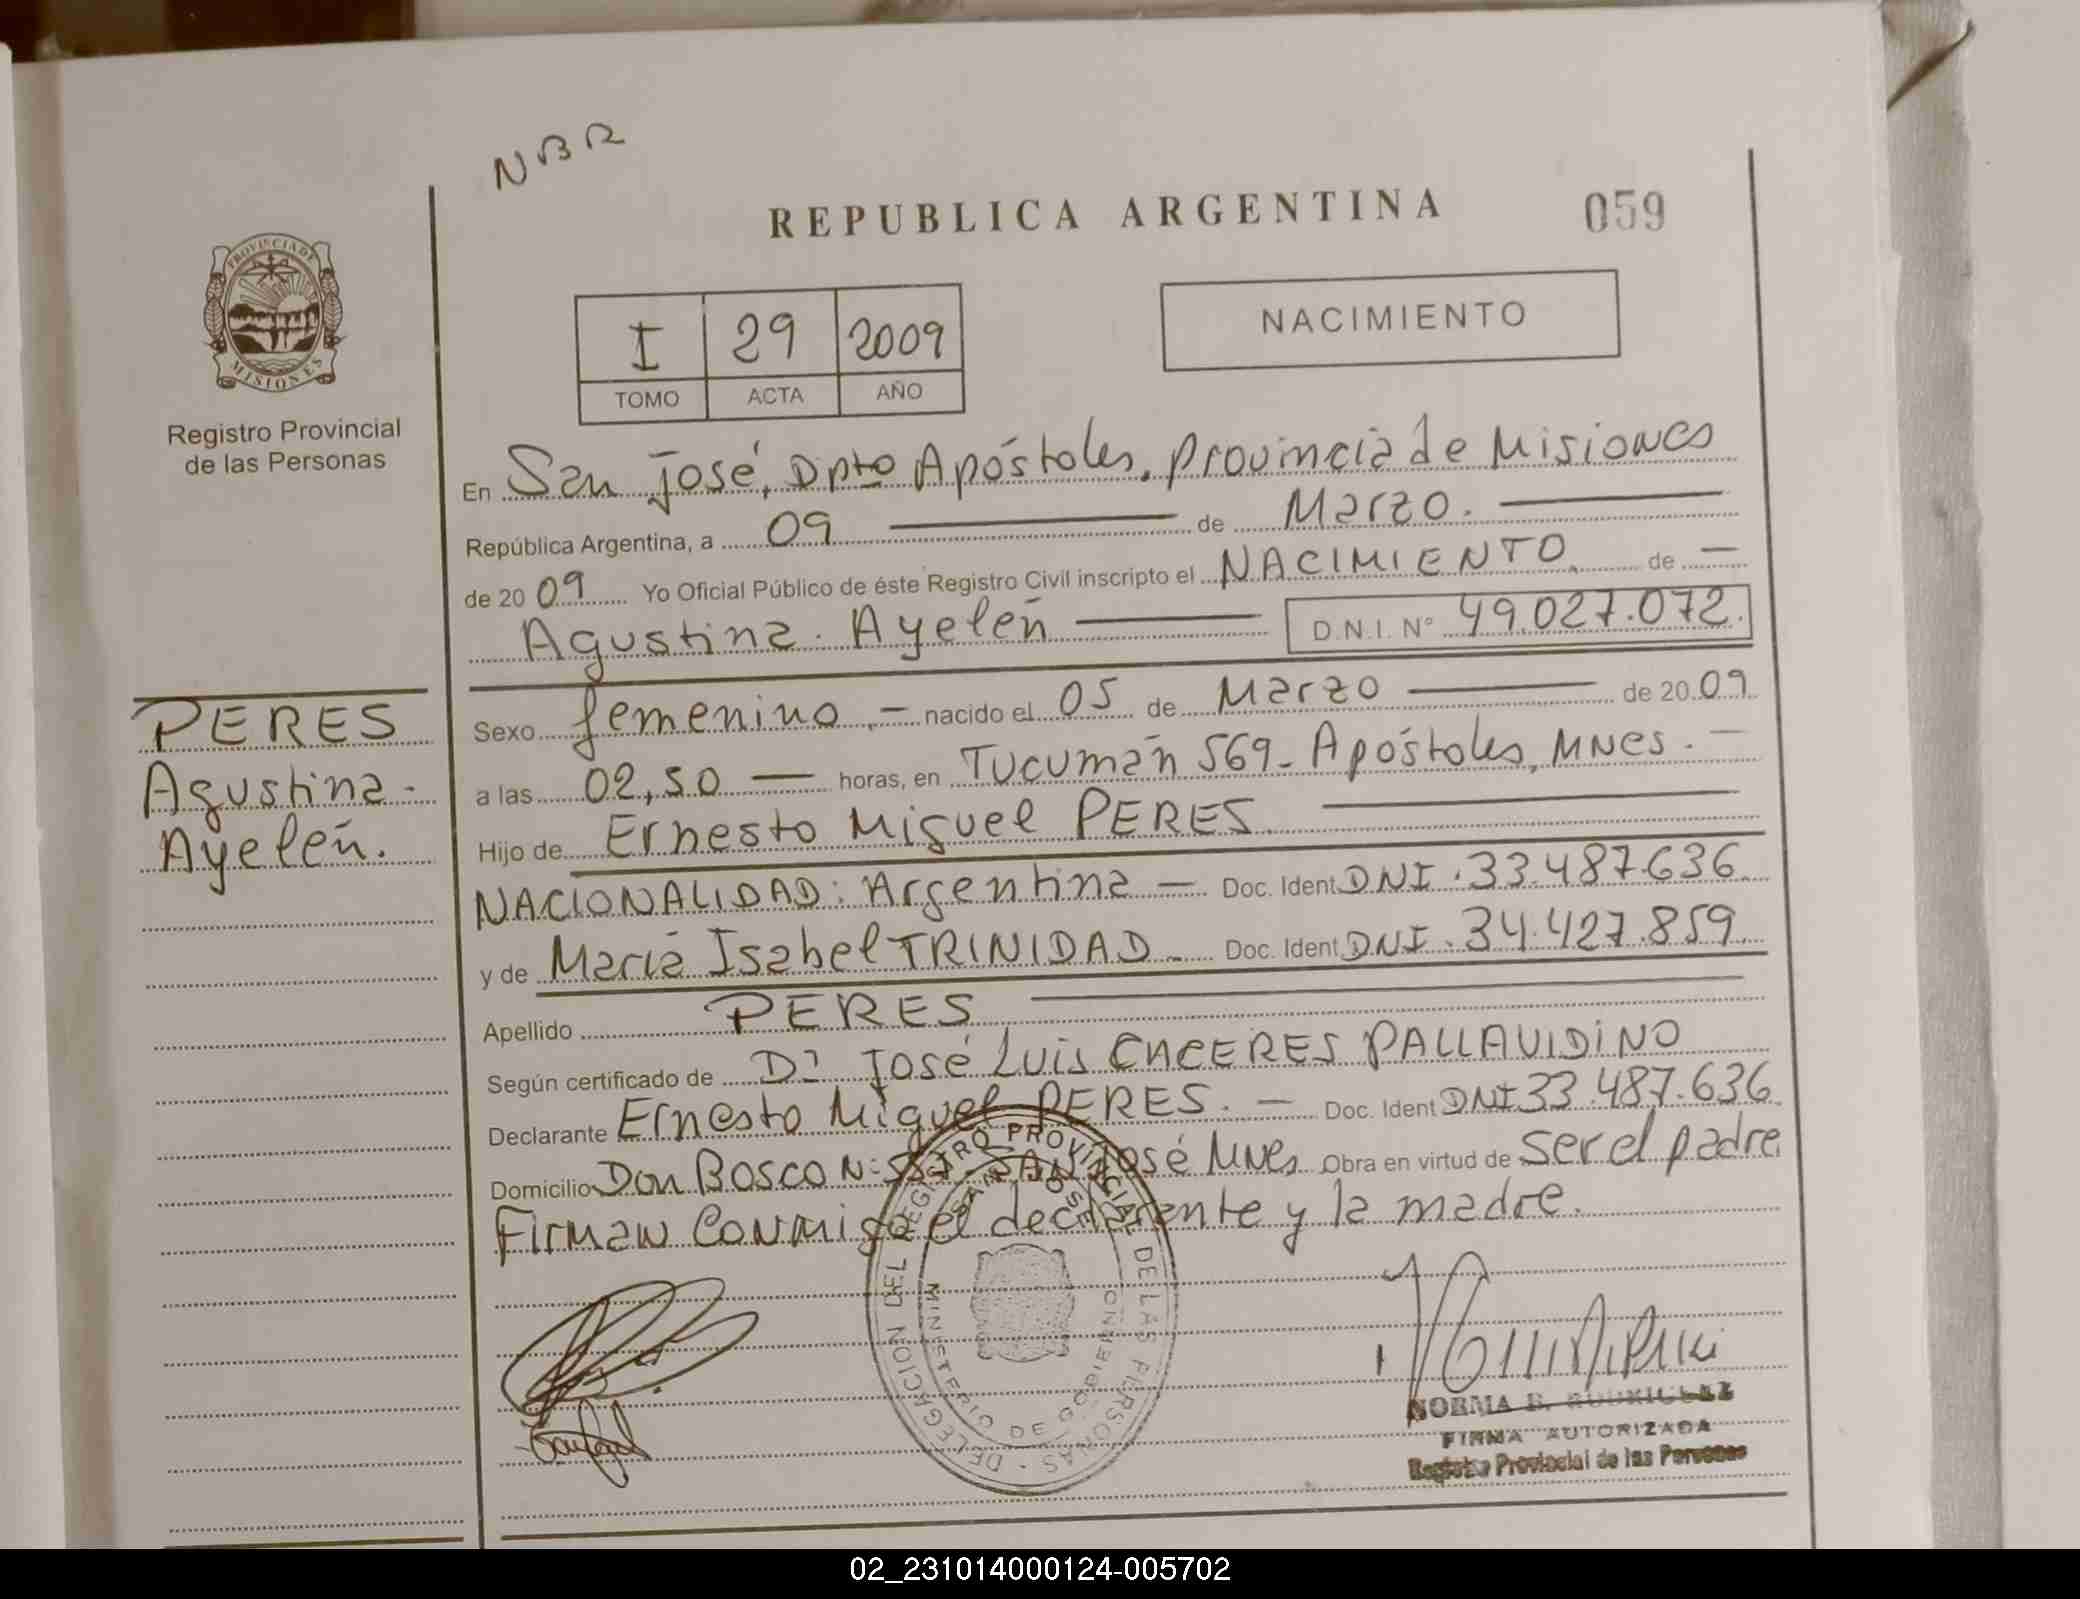 NBR
REPUBLICA ARGENTINA
059
PROVINCIA DE
MISIONES
Registro Provincial
de las Personas
I 29 2009
TOMO ACTA AÑO
NACIMIENTO
En San José, Dpto Apóstoles, provincia de Misiones
República Argentina, a 09 de Marzo.
de 2009 Yo Oficial Público de éste Registro Civil inscripto el NACIMIENTO. de —
Agustina. Ayelén D.N.I. N° 49.027.072.
PERES
Agustina.
Ayelén.
Sexo femenino.- nacido el 05 de Marzo de 2009
a las 02,50 — horas, en Tucumán 569- Apóstoles, MNes. —
Hijo de Ernesto Miguel PERES
NACIONALIDAD: Argentina — Doc. Ident DNI.33.487.636
y de María Isabel TRINIDAD - Doc. Ident DNI.34.427.859
Apellido PERES
Según certificado de Dr José Luis CACERES PALLAVIDINO
Declarante Ernesto Miguel PERES. — Doc. Ident DNI 33.487.636
Domicilio Don Bosco N: SAN José MNes Obra en virtud de ser el padre
Firman conmigo el declarante y la madre.
DELEGACION DEL REGISTRO PROVINCIAL DE LAS PERSONAS -
SAN JOSE
MINISTERIO DE GOBIERNO
NORMA B. RODRIGUEZ
FIRMA AUTORIZADA
Registro Provincial de las Personas
02_231014000124-005702